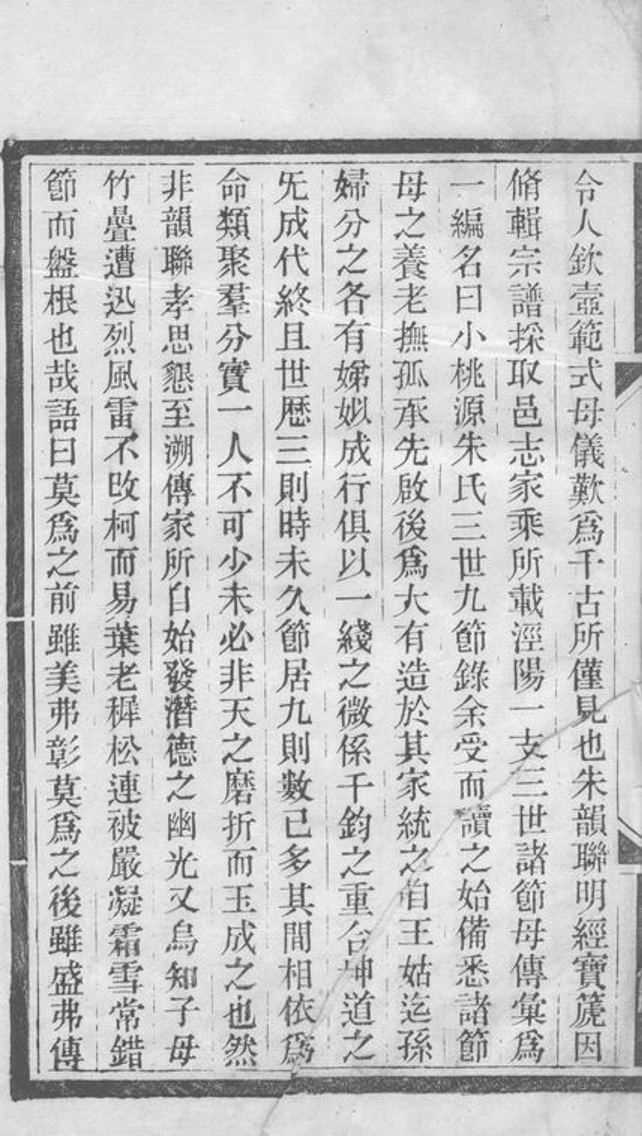 令人欽壼範式母儀歎爲千古所僅見也朱韻聯明經寶篪因
脩輯宗譜採取邑志家乘所載涇陽一支三世諸節母傳彙爲
一編名曰小桃源朱氏三世九節錄余受而讀之始備悉諸節
母之養老撫孤承先啟後爲大有造於其家統之自王姑迄孫
婦分之各有娣姒成行俱以一綫之微係千鈞之重合坤道之
旡成代終且世歷三則時未久節居九則數已多其間相依爲
命類聚羣分實一人不可少未必非天之磨折而玉成之也然
非韻聯孝思懇至溯傳家所自始發潛德之幽光又烏知子母
竹疊遭迅烈風雷不改柯而易葉老穉松連被嚴凝霜雪常錯
節而盤根也哉語曰莫爲之前雖美弗彰莫爲之後雖盛弗傳